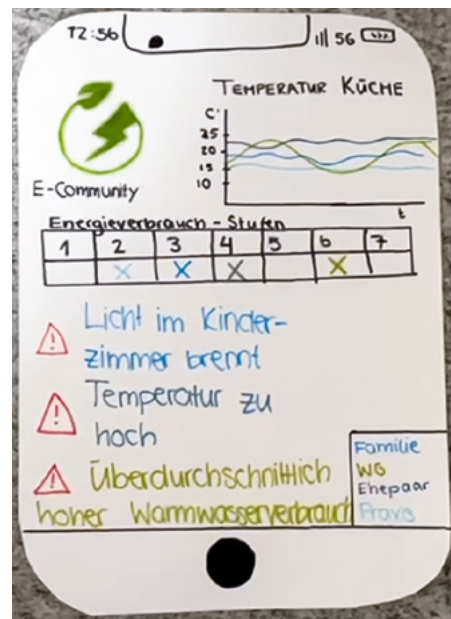 12:56
5G
TEMPERATUR KÜCHE
C°
25
20
15
10
t
E-Community
Energieverbrauch - Stufen
1 2 3 4 5 6 7
X X X X
Licht im Kinder-
zimmer brennt
Temperatur zu
hoch
Überdurchschnittlich
hoher Warmwasserverbrauch
Familie
WG
Ehepaar
Praxis